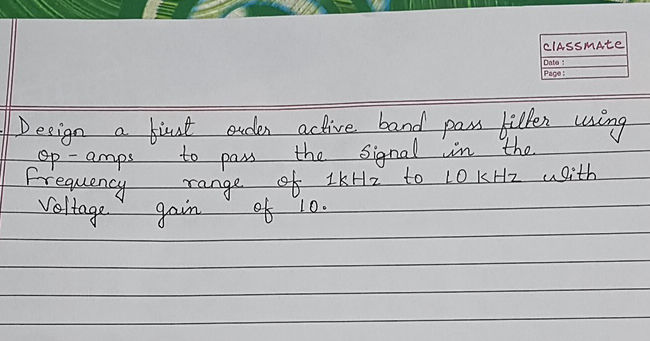 CLASSMATE
Date :
Page :
Design a first order active band pass filter using
op-amps to pass the signal in the
frequency range of 1kHz to 10 KHz with
Voltage gain of 10.